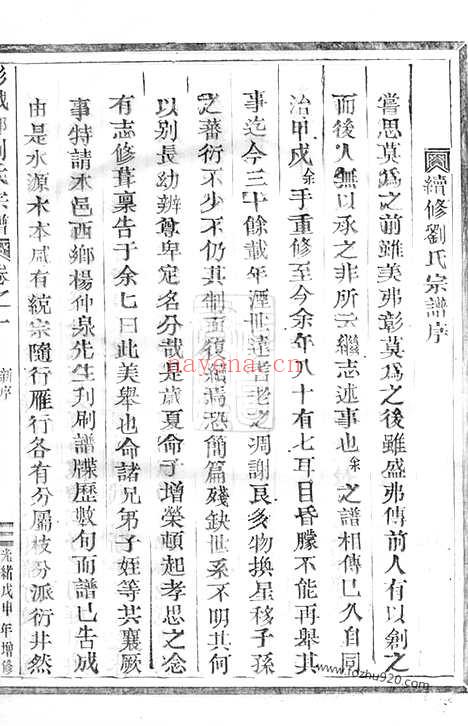 續修劉氏宗譜序
嘗思莫爲之前雖美弗彰莫爲之後雖盛弗傳前人有以創之
而後人無以承之非所云繼志述事也余之譜相傳已久自同
治甲戌余手重修至今余年八十有七耳目昏朦不能再舉其
事迄今三十餘載年湮世遠耆老之凋謝良多物換星移子孫
之蕃衍不少不仍其制而復繼焉恐簡篇殘缺世系不明其何
以別長幼辨尊卑定名分哉是歲夏命子增榮頓起孝思之念
有志修葺稟告于余七曰此美舉也命諸兄弟子姪等共襄厥
事特請本邑西鄉楊仲泉先生刋刷譜牒歷數旬而譜已告成
由是水源木本咸有統宗隨行雁行各有分屬枝分派衍井然
彭城郡劉氏宗譜 卷之一 新序 光緒戊申年增修
nayona.cn
www.fozhu920.com